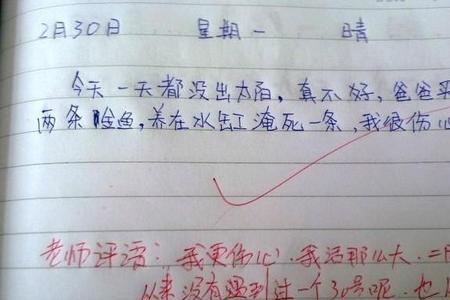 2月30日 星期一 晴
今天一天都没出太阳,真不好,爸爸买
两条金鱼,养在水缸淹死一条,我很伤心
老师评语:我更伤心.我活那么大.二月
从来没有遇到过一个30号呢.也